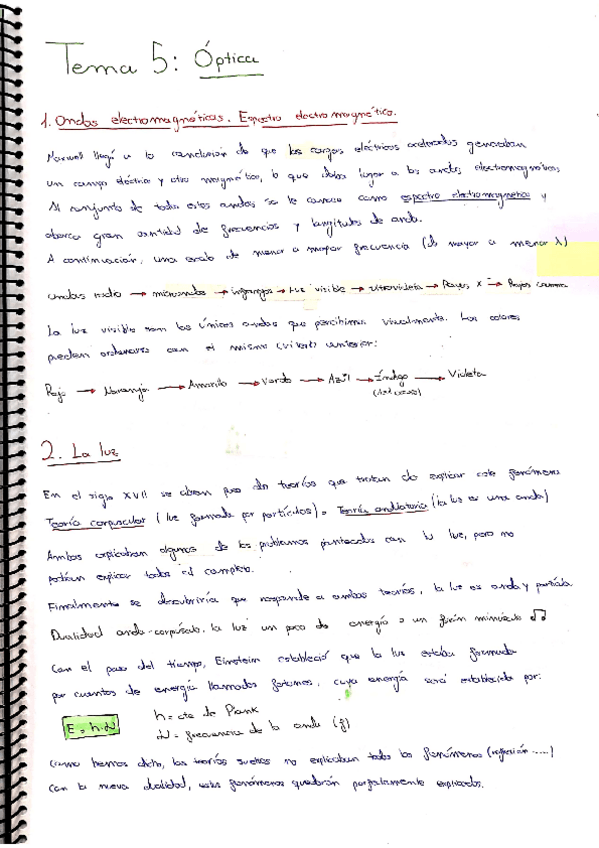 Tema 5: Óptica
1. Ondas electromagnéticas. Espectro electromagnético.
Maxwell llegó a la conclusión de que las cargas eléctricas aceleradas generaban
un campo eléctrico y otro magnético, lo que daba lugar a las ondas electromagnéticas.
Al conjunto de todas estas ondas se le conoce como espectro electromagnético y
abarca gran cantidad de frecuencias y longitudes de onda.
A continuación, una escala de menor a mayor frecuencia (de mayor a menor λ)
ondas radio → microondas → infrarrojos → luz visible → ultravioleta → Rayos X → Rayos gamma
La luz visible son las únicas ondas que percibimos visualmente. Los colores
pueden ordenarse con el mismo criterio anterior:
Rojo → Naranja → Amarillo → Verde → Azul → Índigo → Violeta
2. La luz
En el siglo XVII se abren paso dos teorías que tratan de explicar este fenómeno
Teoría corpuscular (luz formada por partículas) o Teoría ondulatoria (la luz es una onda)
Ambas explicaban algunos de los problemas planteados con la luz, pero no
podían explicar todos al completo.
Finalmente se descubriría que responde a ambas teorías, la luz es onda y partícula
Dualidad onda-corpúsculo. la luz un poco de energía o un fotón minúsculo
Con el paso del tiempo, Einstein estableció que la luz estaba formada
por cuantos de energía llamados fotones, cuya energía será establecida por:
E = h·ν
h = cte de Plank
ν = frecuencia de la onda (f)
Como hemos dicho, las teorías sueltas no explicaban todos los fenómenos (reflexión ....)
Con la nueva dualidad, estos fenómenos quedarán perfectamente explicados.